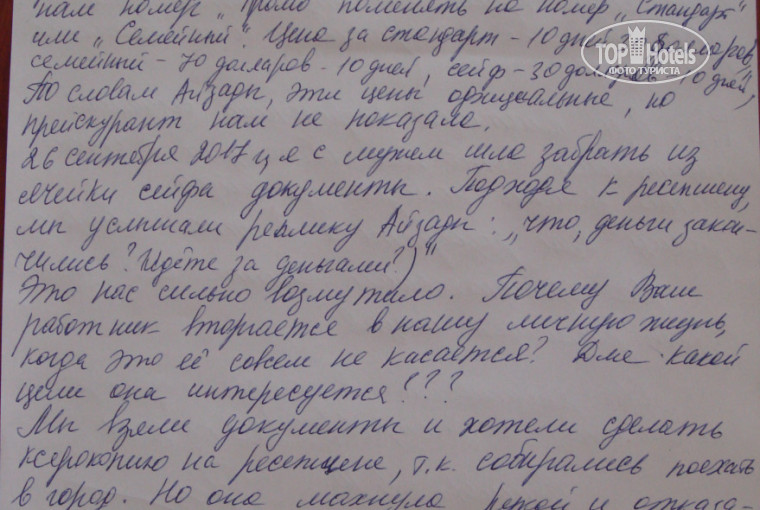 нам номер „Промо" поменять на номер „Стандарт"
или „Семейный". Цена за стандарт - 10 дней 30 долларов,
семейный - 70 долларов - 10 дней, сейф - 30 долларов 10 дней,
По словам Айзады, эти цены официальные, но
прейскурант нам не показала.
26 сентября 2017 г я с мужем шла забрать из
ячейки сейфа документы. Подходя к ресепшену,
мы услышали реплику Айзады: „что, деньги закон-
чились? Идёте за деньгами?)"
Это нас сильно возмутило. Почему Ваш
работник вторгается в нашу личную жизнь,
когда это её совсем не касается? Для какой
цели она интересуется???
Мы взяли документы и хотели сделать
ксерокопию на ресепшене, т.к. собирались поехать
в город. Но она махнула рукой и отказа-
TOP Hotels
ФОТО ТУРИСТА